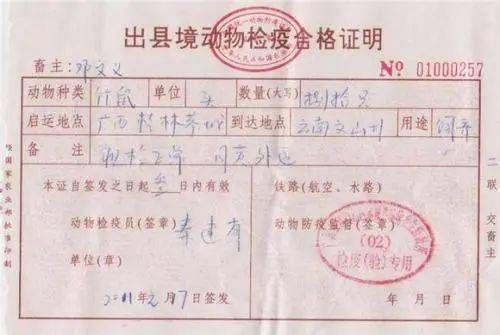 出县境动物检疫合格证明
畜主：邓文义
№ 01000257
动物种类 竹鼠 单位 头 数量(大写) 捌拾只
启运地点 广西 林 到达地点 云南文山州 用途 饲养
备注 同意外运
本证自签发之日起 叁 日内有效
铁路(航空、水路)
动物检疫员(签章) 秦建有
动物防疫监督(签章)
单位(章)
(02)
检疫(验)专用
2011年2月17日签发
年 月 日
二联交畜主